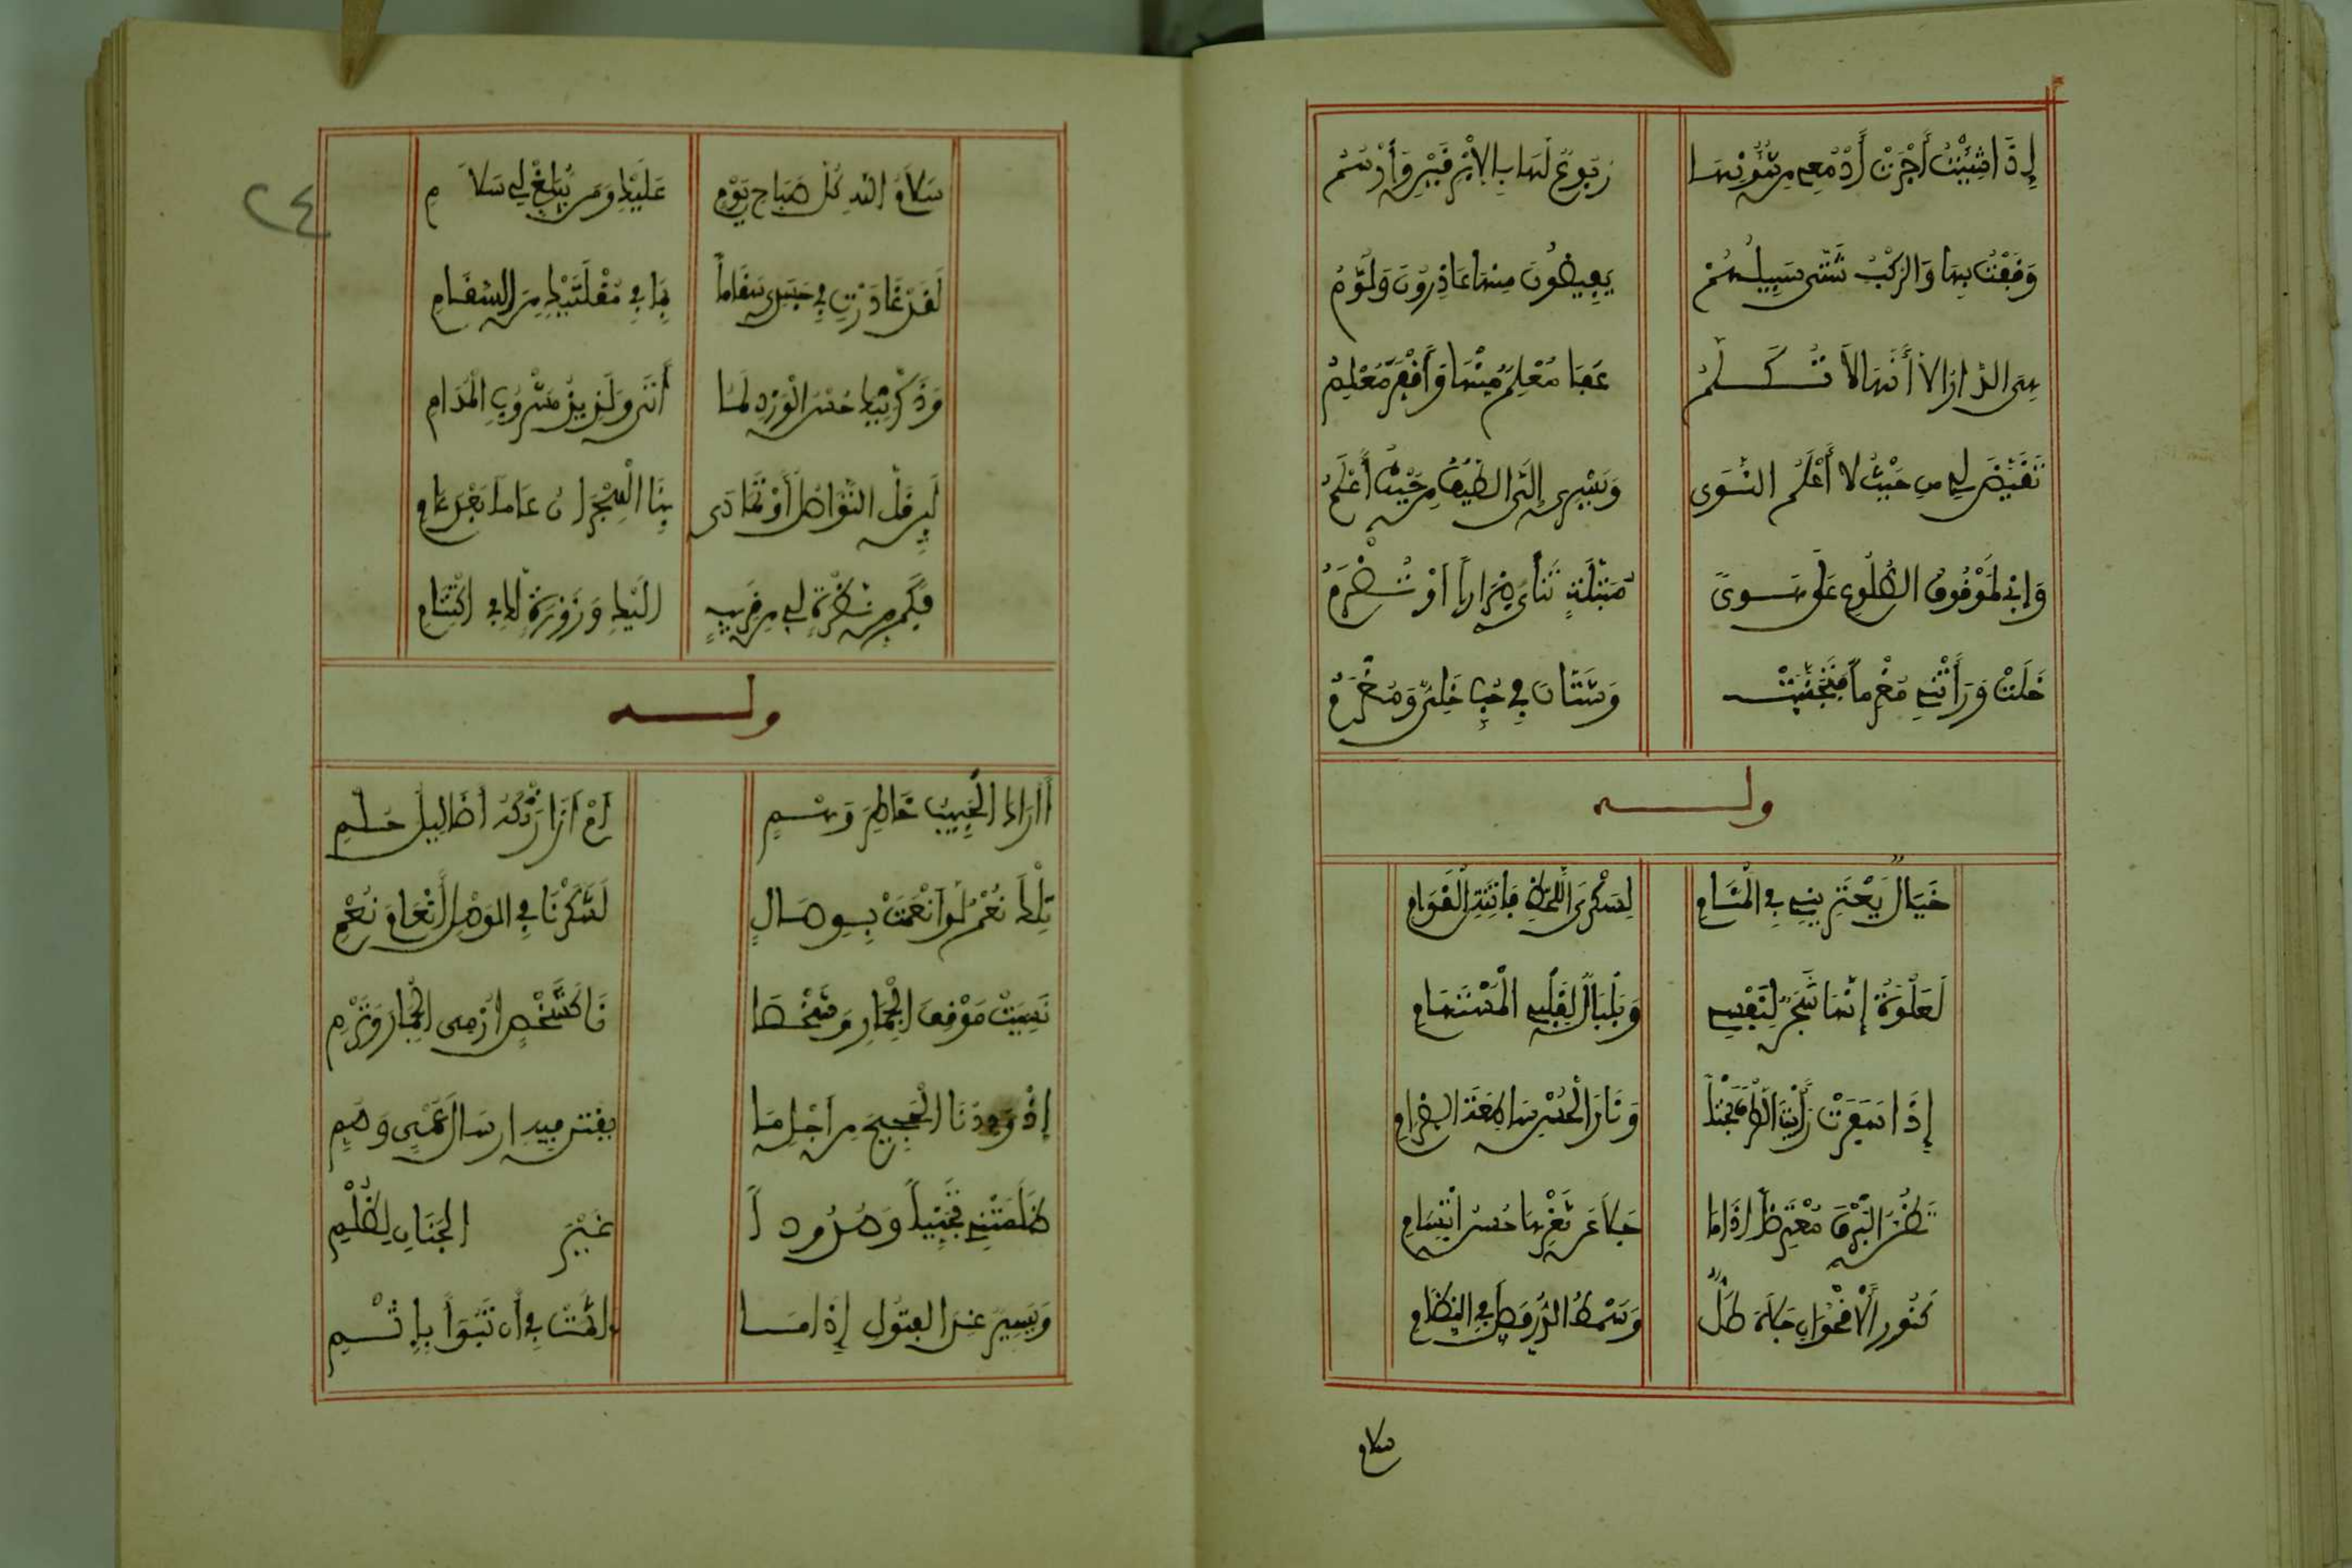 إِذَا شِئْتُ أَجْرَتْ أَدْمُعِي مِنْ شُؤُونِهَا رُبُوعٌ لَهَا بِالْأَبْرَقَيْنِ وَأَرْسُمُ
وَقَفْتُ بِهَا وَالرَّكْبُ شَتَّى سَبِيلُهُمْ يفيضون مِنْهَا عَاذِرُونَ وَلُوَّمُ
هي الدار إلا أنها لَا تُكَلَّمُ عَفَا مُعْلَمٌ مِنْهَا وَأَقْفَرَ مُعْلَمُ
تَقَيَّضَ لي من حَيْثُ لا أَعْلَمُ النَّوَى وَيَسْرِي إِلَيَّ الطَّيْفُ مِنْ حَيْثُ أَعْلَمُ
وَإِنِّي لَمَوْقُوفُ الضُّلُوعِ عَلَى جَوىً مَبْتَلَةٍ تَنْأَى مِرَاراً أَوْ تُضْرَمُ
خَلَتْ وَرَأَتْنِي مُغْرَماً فَتَجَنَّبَتْ وَشَتَّانَ فِي حُبٍّ خَلِيٌّ وَمُغْرَمُ
وله
خَيَالٌ يَعْتَرِينِي فِي الْمَنَامِ لِسَكْرَى اللَّحْظِ فَاتِنَةِ الْقَوَامِ
لَعَلْوَةَ إِنَّهَا شَجَنٌ لِنَفْسِي وَبَلْبَالٌ لِقَلْبِي الْمُسْتَهَامِ
إِذَا سَفَرَتْ رَأَيْتَ الظَّرْفَ بَحْتاً وَنَارَ الْحُسْنِ سَاطِعَةَ الضرام
تَظُنُّ الْبَرْقَ مُعْتَرِضاً إِذَا مَا جَلَا عَنْ ثَغْرِهَا حُسْنُ ابْتِسَامِ
كَنَوْرِ الْأُقْحُوَانِ جَلَاهُ طَلٌّ وَسِمْطِ الدُّرِّ فُصِّلَ فِي النِّظَامِ
سلام
٢٤
سَلَامُ اللهِ كُلَّ صَبَاحِ يَوْمٍ عَلَيْكِ وَمَنْ يُبَلِّغُ لِي سَلَامِ
لَقَدْ غَادَرْتِ فِي جَسَدِي سَقَاماً بِمَا فِي مُقْلَتَيْكِ مِنَ السَّقَامِ
وَذَكَّرَنِيكِ حُسْنُ الْوَرْدِ لَمَّا أَتَى وَلَذِيذُ مَشْرُوبِ الْمُدَامِ
لَئِنْ قَلَّ التَّوَاصُلُ أَوْ تَمَادَى بِنَا الْهِجْرَانُ عَاماً بَعْدَ عَامِ
فَكَمْ مِنْ نَظْرَةٍ لِي مِنْ قَرِيبٍ إليك وَزَوْرَةٍ لك فِي اكْتِتَامِ
وله
أَأَرَاكَ الْحَبِيبُ خَاطِرَ وَهْمٍ أَمْ أَزَارَتْكَهُ أَضَالِيلُ حُلْمِ
تِلْكَ نُعْمٌ لَوْ أَنْعَمَتْ بِوِصَالٍ لَشَكَرْنَا فِي الْوَصْلِ أَنْعَامَ نُعْمِ
نَسِيَتْ مَوْقِفَ الْجِمَارِ وَشَخْصَا نَا كَشَخْصٍ أَرْمِي الْجِمَارَ وَتَرْمِي
إِذْ وَدِدْنَا الْحَجِيجَ مِنْ أَجْلِ مَا يفتن فيه أرسال عُمْيٍ وَصُمِّ
ظَلَمَتْنِي تَجَنُّباً وَصُدُوداً غَيْرَ الْجَنَانِ لِظُلْمِي
وَيَسِيرٌ عند القتول إِذَا مَا أثمت فِي أَن تَبُوءَ بِإِثْمِ